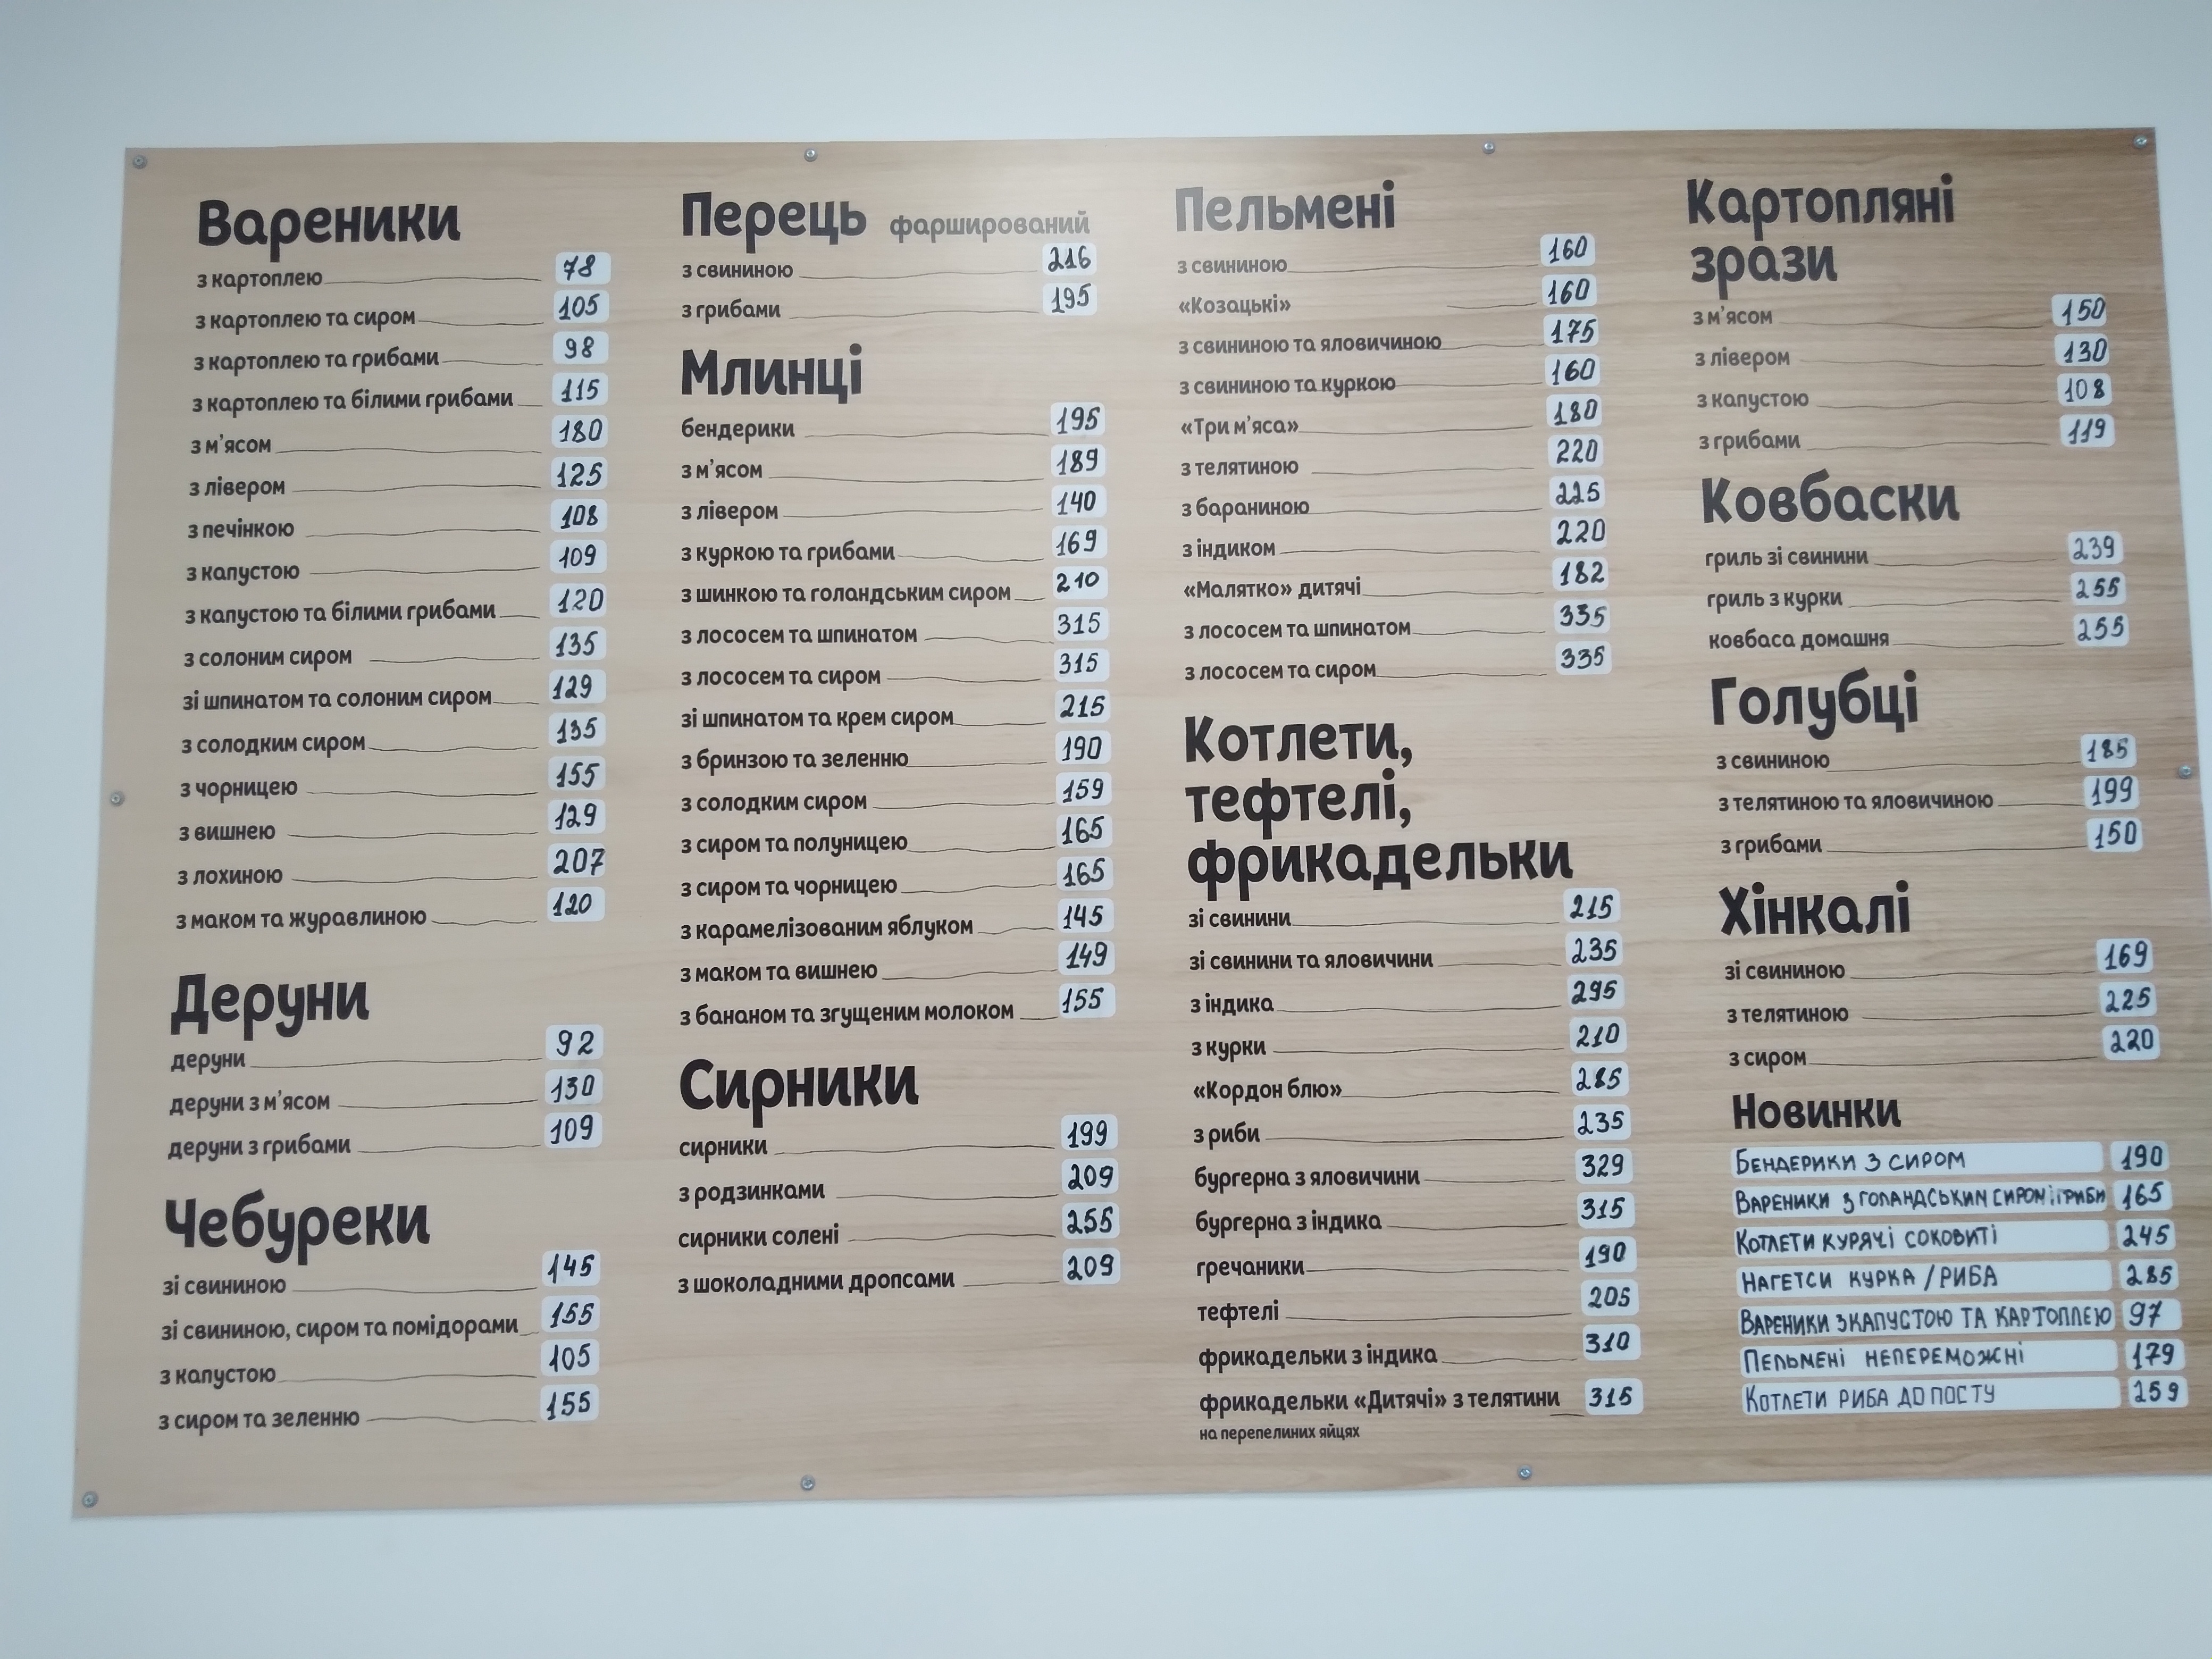 Вареники
з картоплею 78
з картоплею та сиром 105
з картоплею та грибами 98
з картоплею та білими грибами 115
з м'ясом 180
з лівером 125
з печінкою 108
з капустою 109
з капустою та білими грибами 120
з солоним сиром 135
зі шпинатом та солоним сиром 129
з солодким сиром 135
з чорницею 155
з вишнею 129
з лохиною 207
з маком та журавлиною 120
Деруни
деруни 92
деруни з м'ясом 130
деруни з грибами 109
Чебуреки
зі свининою 145
зі свининою, сиром та помідорами 155
з капустою 105
з сиром та зеленню 155
Перець фарширований
з свининою 216
з грибами 195
Млинці
бендерики 195
з м'ясом 189
з лівером 140
з куркою та грибами 169
з шинкою та голандським сиром 210
з лососем та шпинатом 315
з лососем та сиром 315
зі шпинатом та крем сиром 215
з бринзою та зеленню 190
з солодким сиром 159
з сиром та полуницею 165
з сиром та чорницею 165
з карамелізованим яблуком 145
з маком та вишнею 149
з бананом та згущеним молоком 155
Сирники
сирники 199
з родзинками 209
сирники солені 255
з шоколадними дропсами 209
Пельмені
з свининою 160
«Козацькі» 160
з свининою та яловичиною 175
з свининою та куркою 160
«Три м'яса» 180
з телятиною 220
з бараниною 225
з індиком 220
«Малятко» дитячі 182
з лососем та шпинатом 335
з лососем та сиром 335
Котлети,
тефтелі,
фрикадельки
зі свинини 215
зі свинини та яловичини 235
з індика 295
з курки 210
«Кордон блю» 285
з риби 235
бургерна з яловичини 329
бургерна з індика 315
гречаники 190
тефтелі 205
фрикадельки з індика 310
фрикадельки «Дитячі» з телятини 315
на перепелиних яйцях
Картопляні
зрази
з м'ясом 150
з лівером 130
з капустою 108
з грибами 119
Ковбаски
гриль зі свинини 239
гриль з курки 255
ковбаса домашня 255
Голубці
з свининою 185
з телятиною та яловичиною 199
з грибами 150
Хінкалі
зі свининою 169
з телятиною 225
з сиром 220
Новинки
БЕНДЕРИКИ З СИРОМ 190
ВАРЕНИКИ З ГОЛАНДСЬКИМ СИРОМ і ГРИБИ 165
КОТЛЕТИ КУРЯЧІ СОКОВИТІ 245
НАГЕТСИ КУРКА / РИБА 285
ВАРЕНИКИ З КАПУСТОЮ ТА КАРТОПЛЕЮ 97
ПЕЛЬМЕНІ НЕПЕРЕМОЖНІ 179
КОТЛЕТИ РИБА ДО ПОСТУ 259